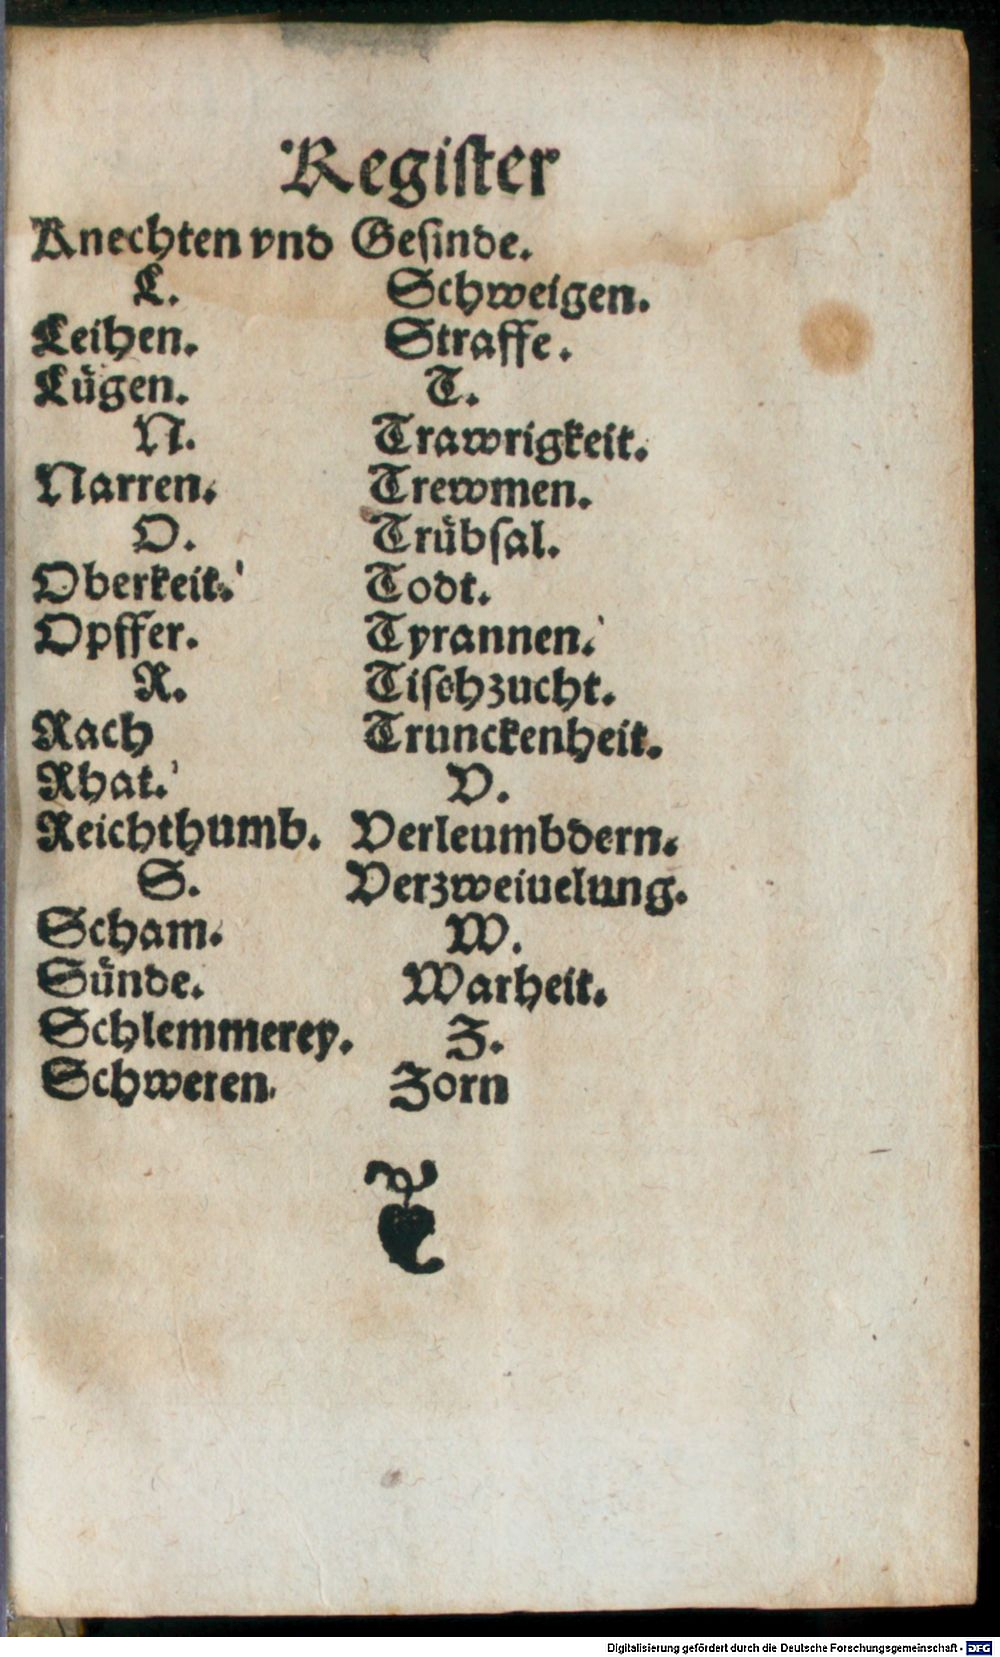 Register
Knechten vnd Gesinde.
L.
Leihen.
Lügen.
N.
Narren.
O.
Oberkeit.
Opffer.
R.
Rach
Rhat.
Reichthumb.
S.
Scham.
Sünde.
Schlemmerey.
Schweren.
Schweigen.
Straffe.
T.
Trawrigkeit.
Trewmen.
Trübsal.
Todt.
Tyrannen.
Tischzucht.
Trunckenheit.
V.
Verleumbdern.
Verzweiuelung.
W.
Warheit.
Z.
Zorn
Digitalisierung gefördert durch die Deutsche Forschungsgemeinschaft - DFG